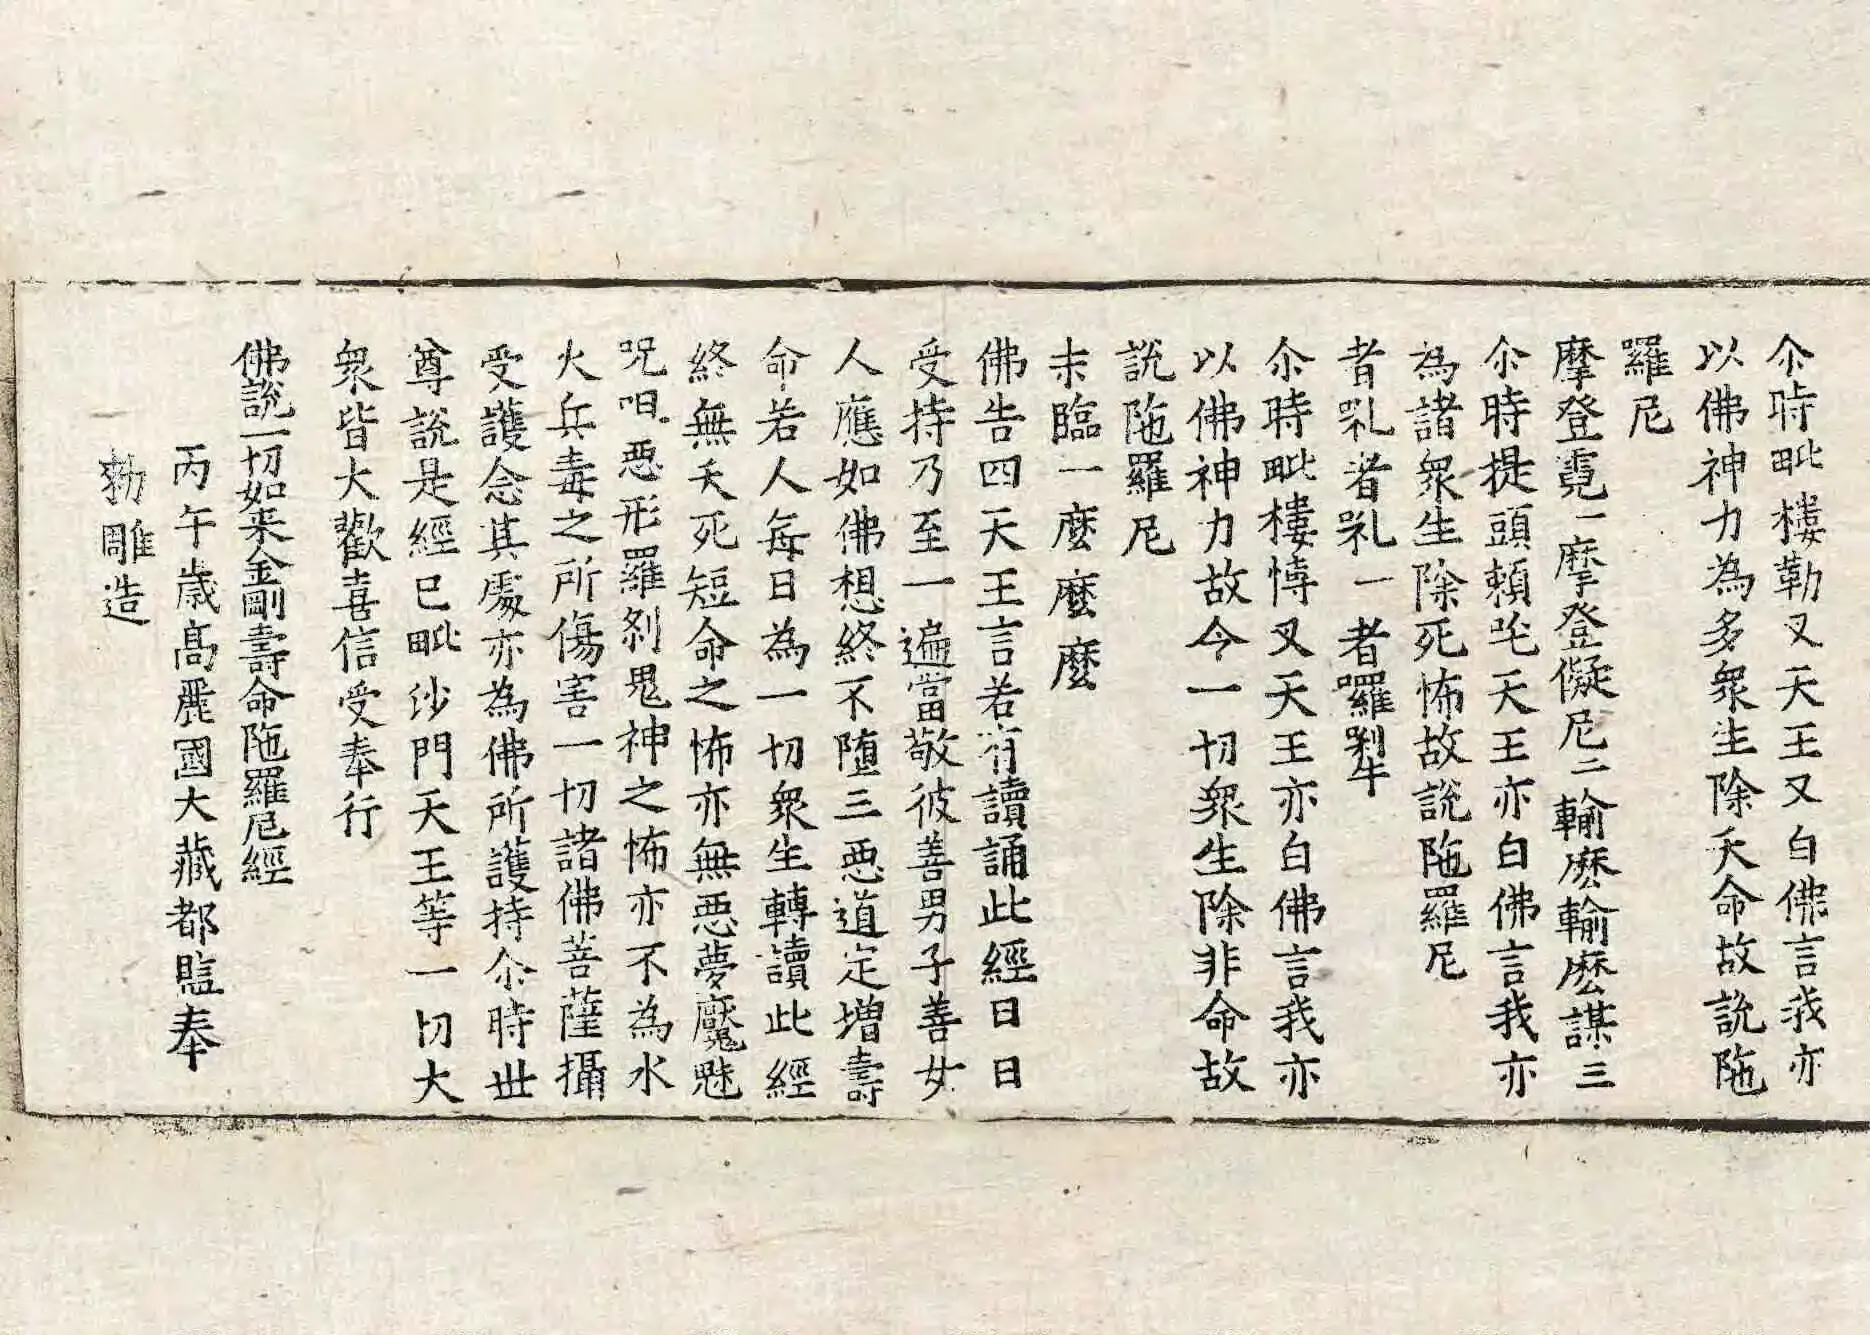 尒時毗樓勒叉天王又白佛言我亦
以佛神力為多衆生除夭命故說陁
羅尼
摩登霓一摩登儗尼二輸麽輸麽謀三
尒時提頭頼吒天王亦白佛言我亦
為諸衆生除死怖故說陁羅尼
者䄧者䄧一者羅䄧
尒時毗樓愽叉天王亦白佛言我亦
以佛神力故今一切衆生除非命故
說陁羅尼
末臨一麽麽麽
佛告四天王言若有讀誦此經日日
受持乃至一遍當敬彼善男子善女
人應如佛想終不墮三惡道定增壽
命若人每日為一切衆生轉讀此經
終無夭死短命之怖亦無惡夢魘魅
呪咀惡形羅剎鬼神之怖亦不為水
火兵毒之所傷害一切諸佛菩薩攝
受護念其處亦為佛所護持尒時世
尊說是經已毗沙門天王等一切大
衆皆大歡喜信受奉行
佛說一切如来金剛壽命陁羅尼經
丙午歲高麗國大藏都監奉
勑雕造